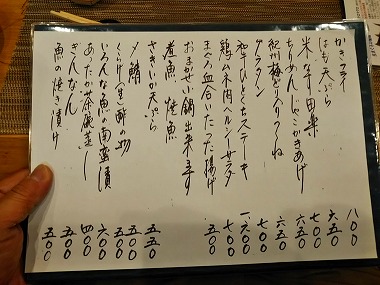 かきフライ 八〇〇
はも天ぷら 六五〇
米なす田楽 七〇〇
ちりめんじゃこかきあげ 六五〇
紀州梅どり入りつくね 六五〇
グラタン 七〇〇
和牛ひとくちステーキ 一六〇〇
鶏ムネ肉ヘルシーサラダ 七〇〇
まぐろ血合いたつた揚げ 五〇〇
おまかせ鍋出来ます
煮魚 焼魚
さきいか天ぷら 五五〇
〆鯖 五五〇
くらげ(生)酢の物 五〇〇
いろんな魚の南蛮漬 六〇〇
あったか茶碗蒸し 四〇〇
ぎんなん 五〇〇
魚の焼き漬け 五〇〇